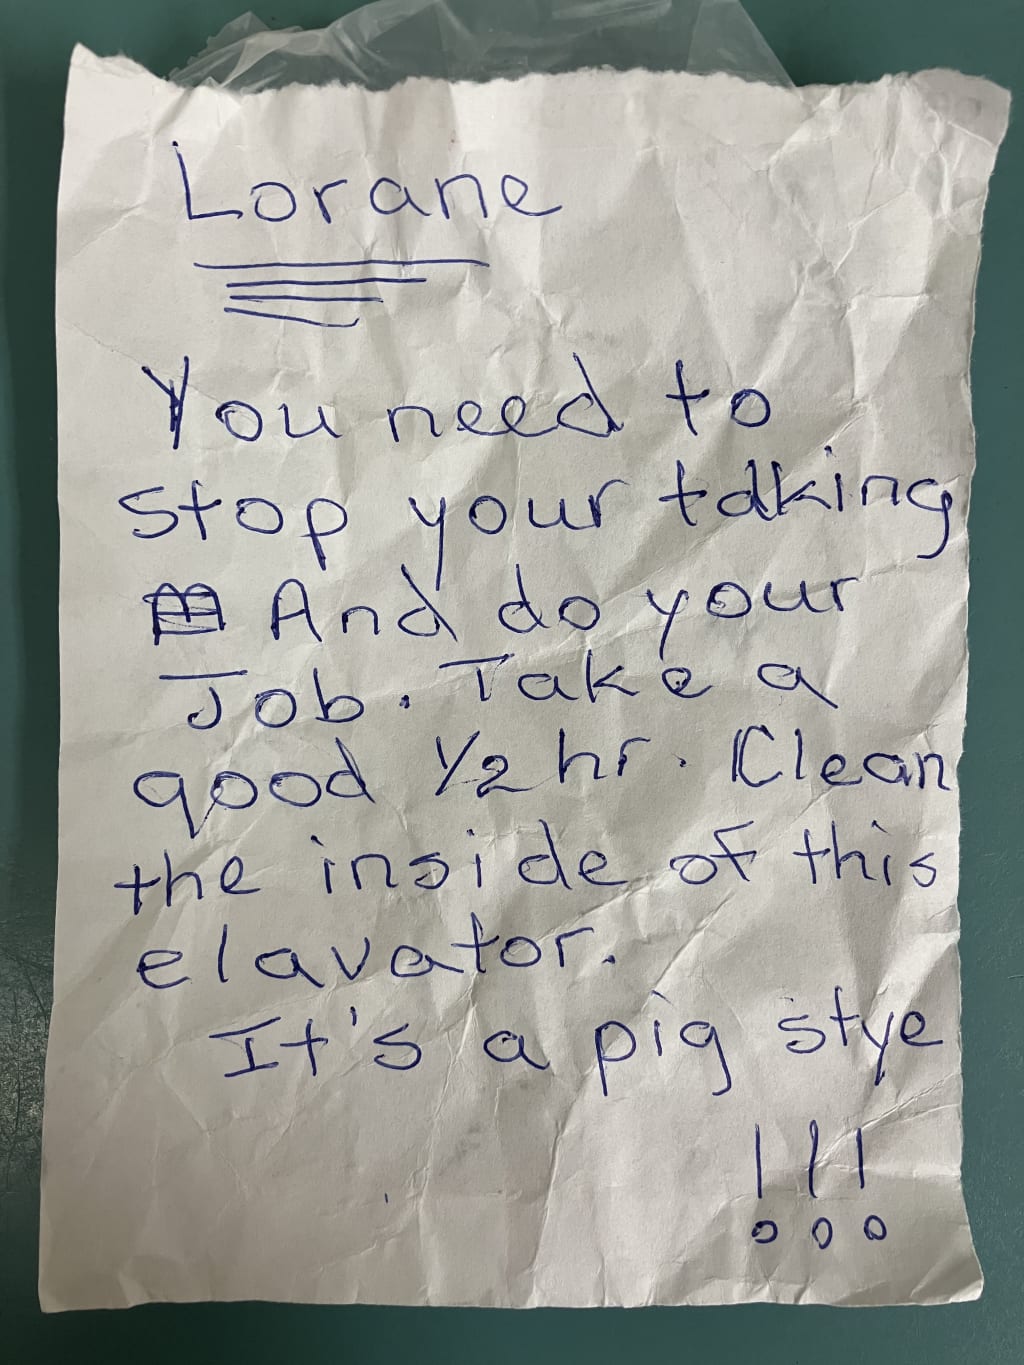 Lorane
You need to
stop your talking
And do your
Job. Take a
good 1/2 hr. Clean
the inside of this
elavator.
It's a pig stye
!!!